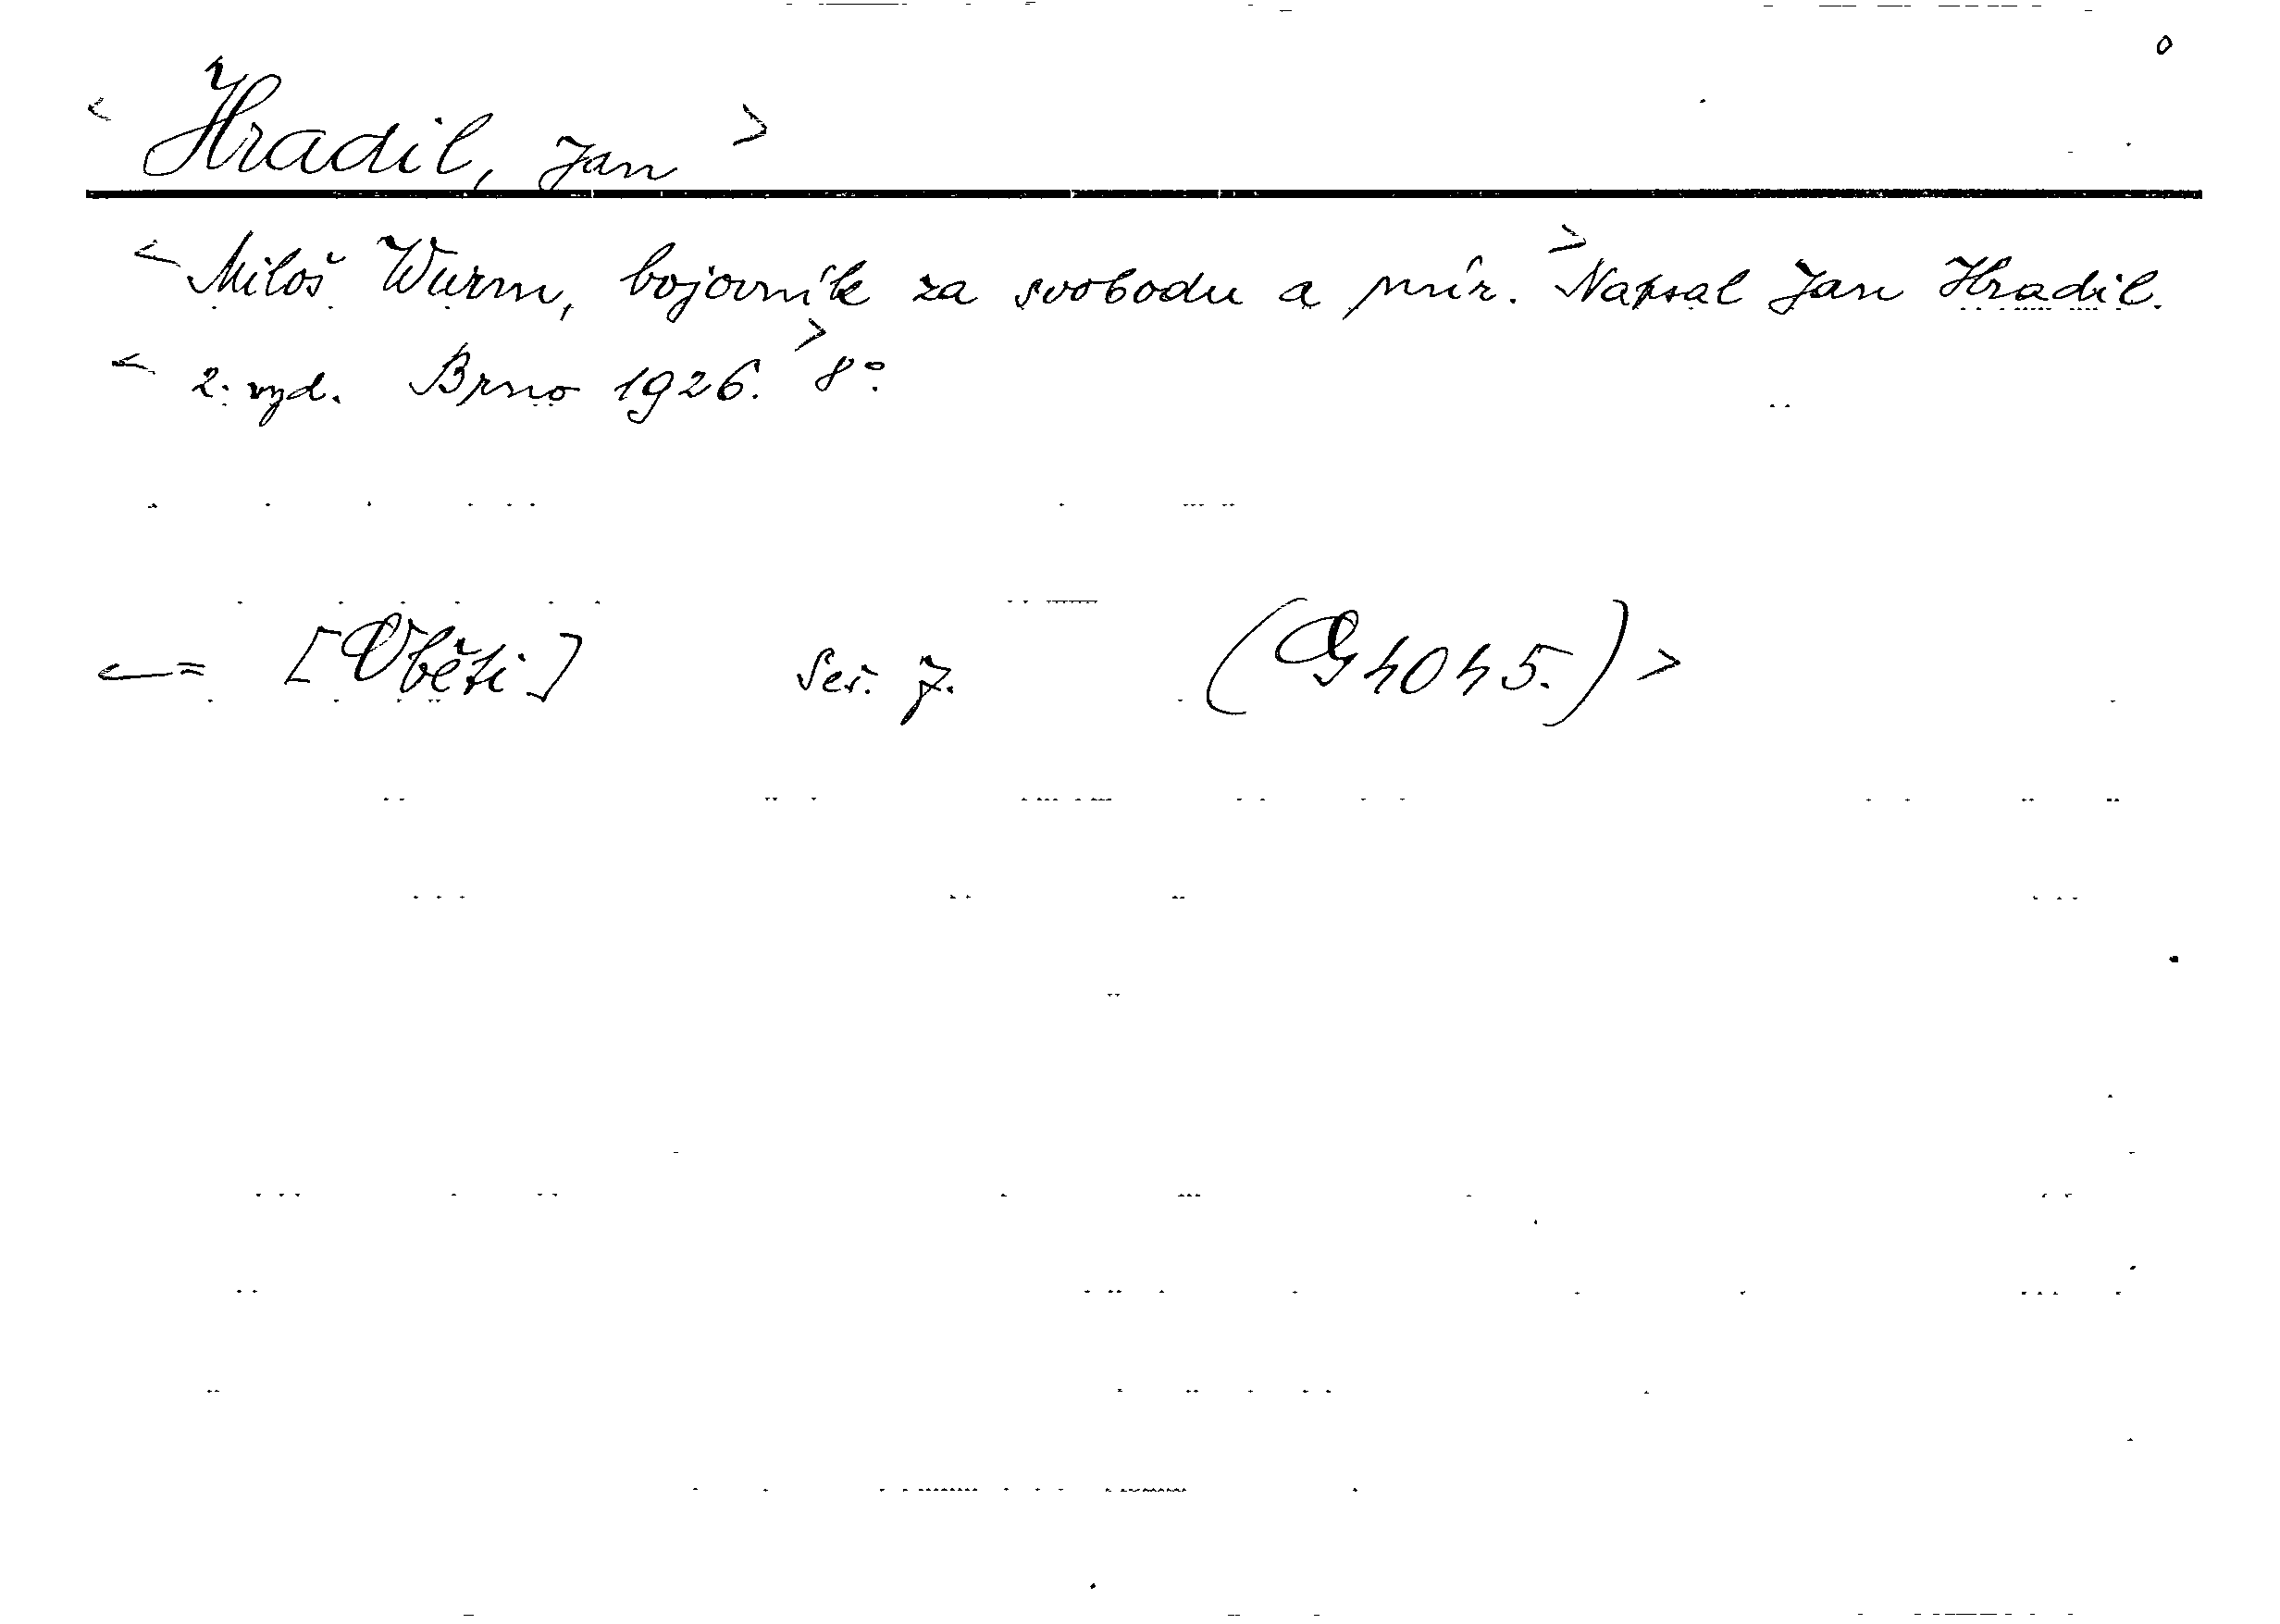 < Hradil, Jan >
< Miloš Wurm, bojovník za svobodu a mír. > Napsal Jan Hradil.
< 2. vyd. Brno 1926. > 8°.
< = [Oběti] Seš. 7. (G4045.) >